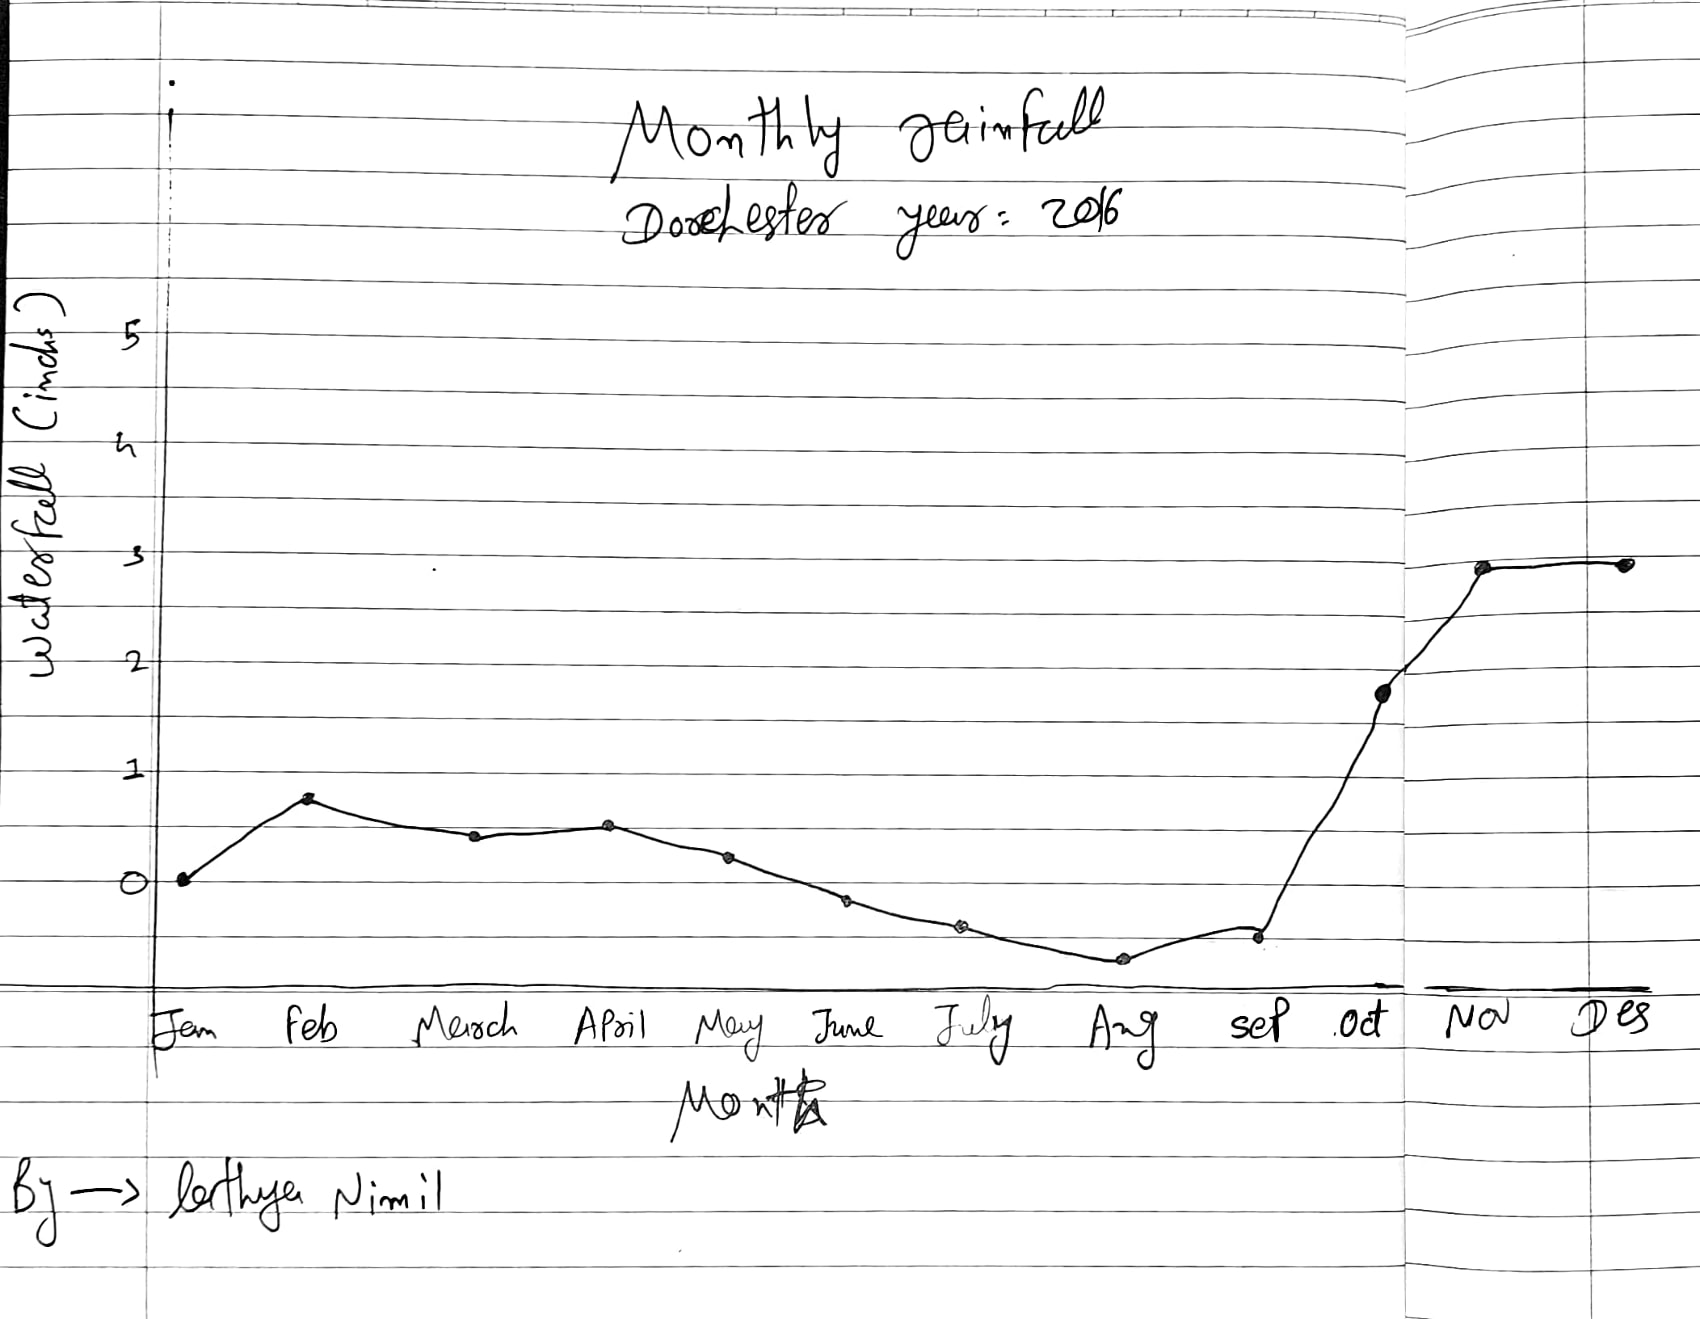 Monthly rainfall
Dorchester year: 2016
Waterfall (inchs)
5
4
3
2
1
0
Jan Feb March April May June July Aug sep oct Nov Des
Month
By → Nimil